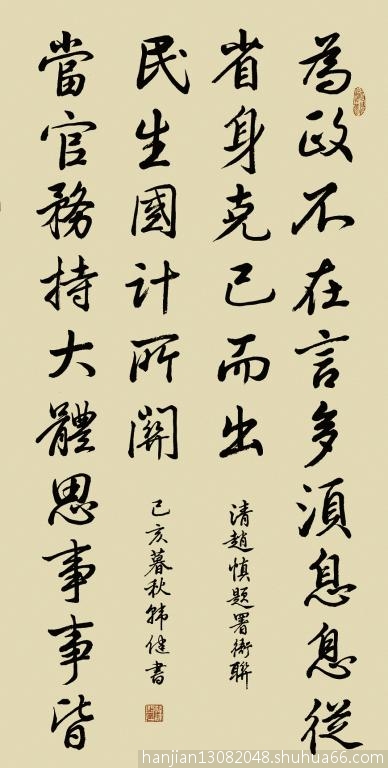 為政不在言多須息息從
省身克己而出
當官務持大體思事事皆
民生國計所關
清趙慎題署衙聯
己亥暮秋韩健書
hanjian13082048.shuhua66.com